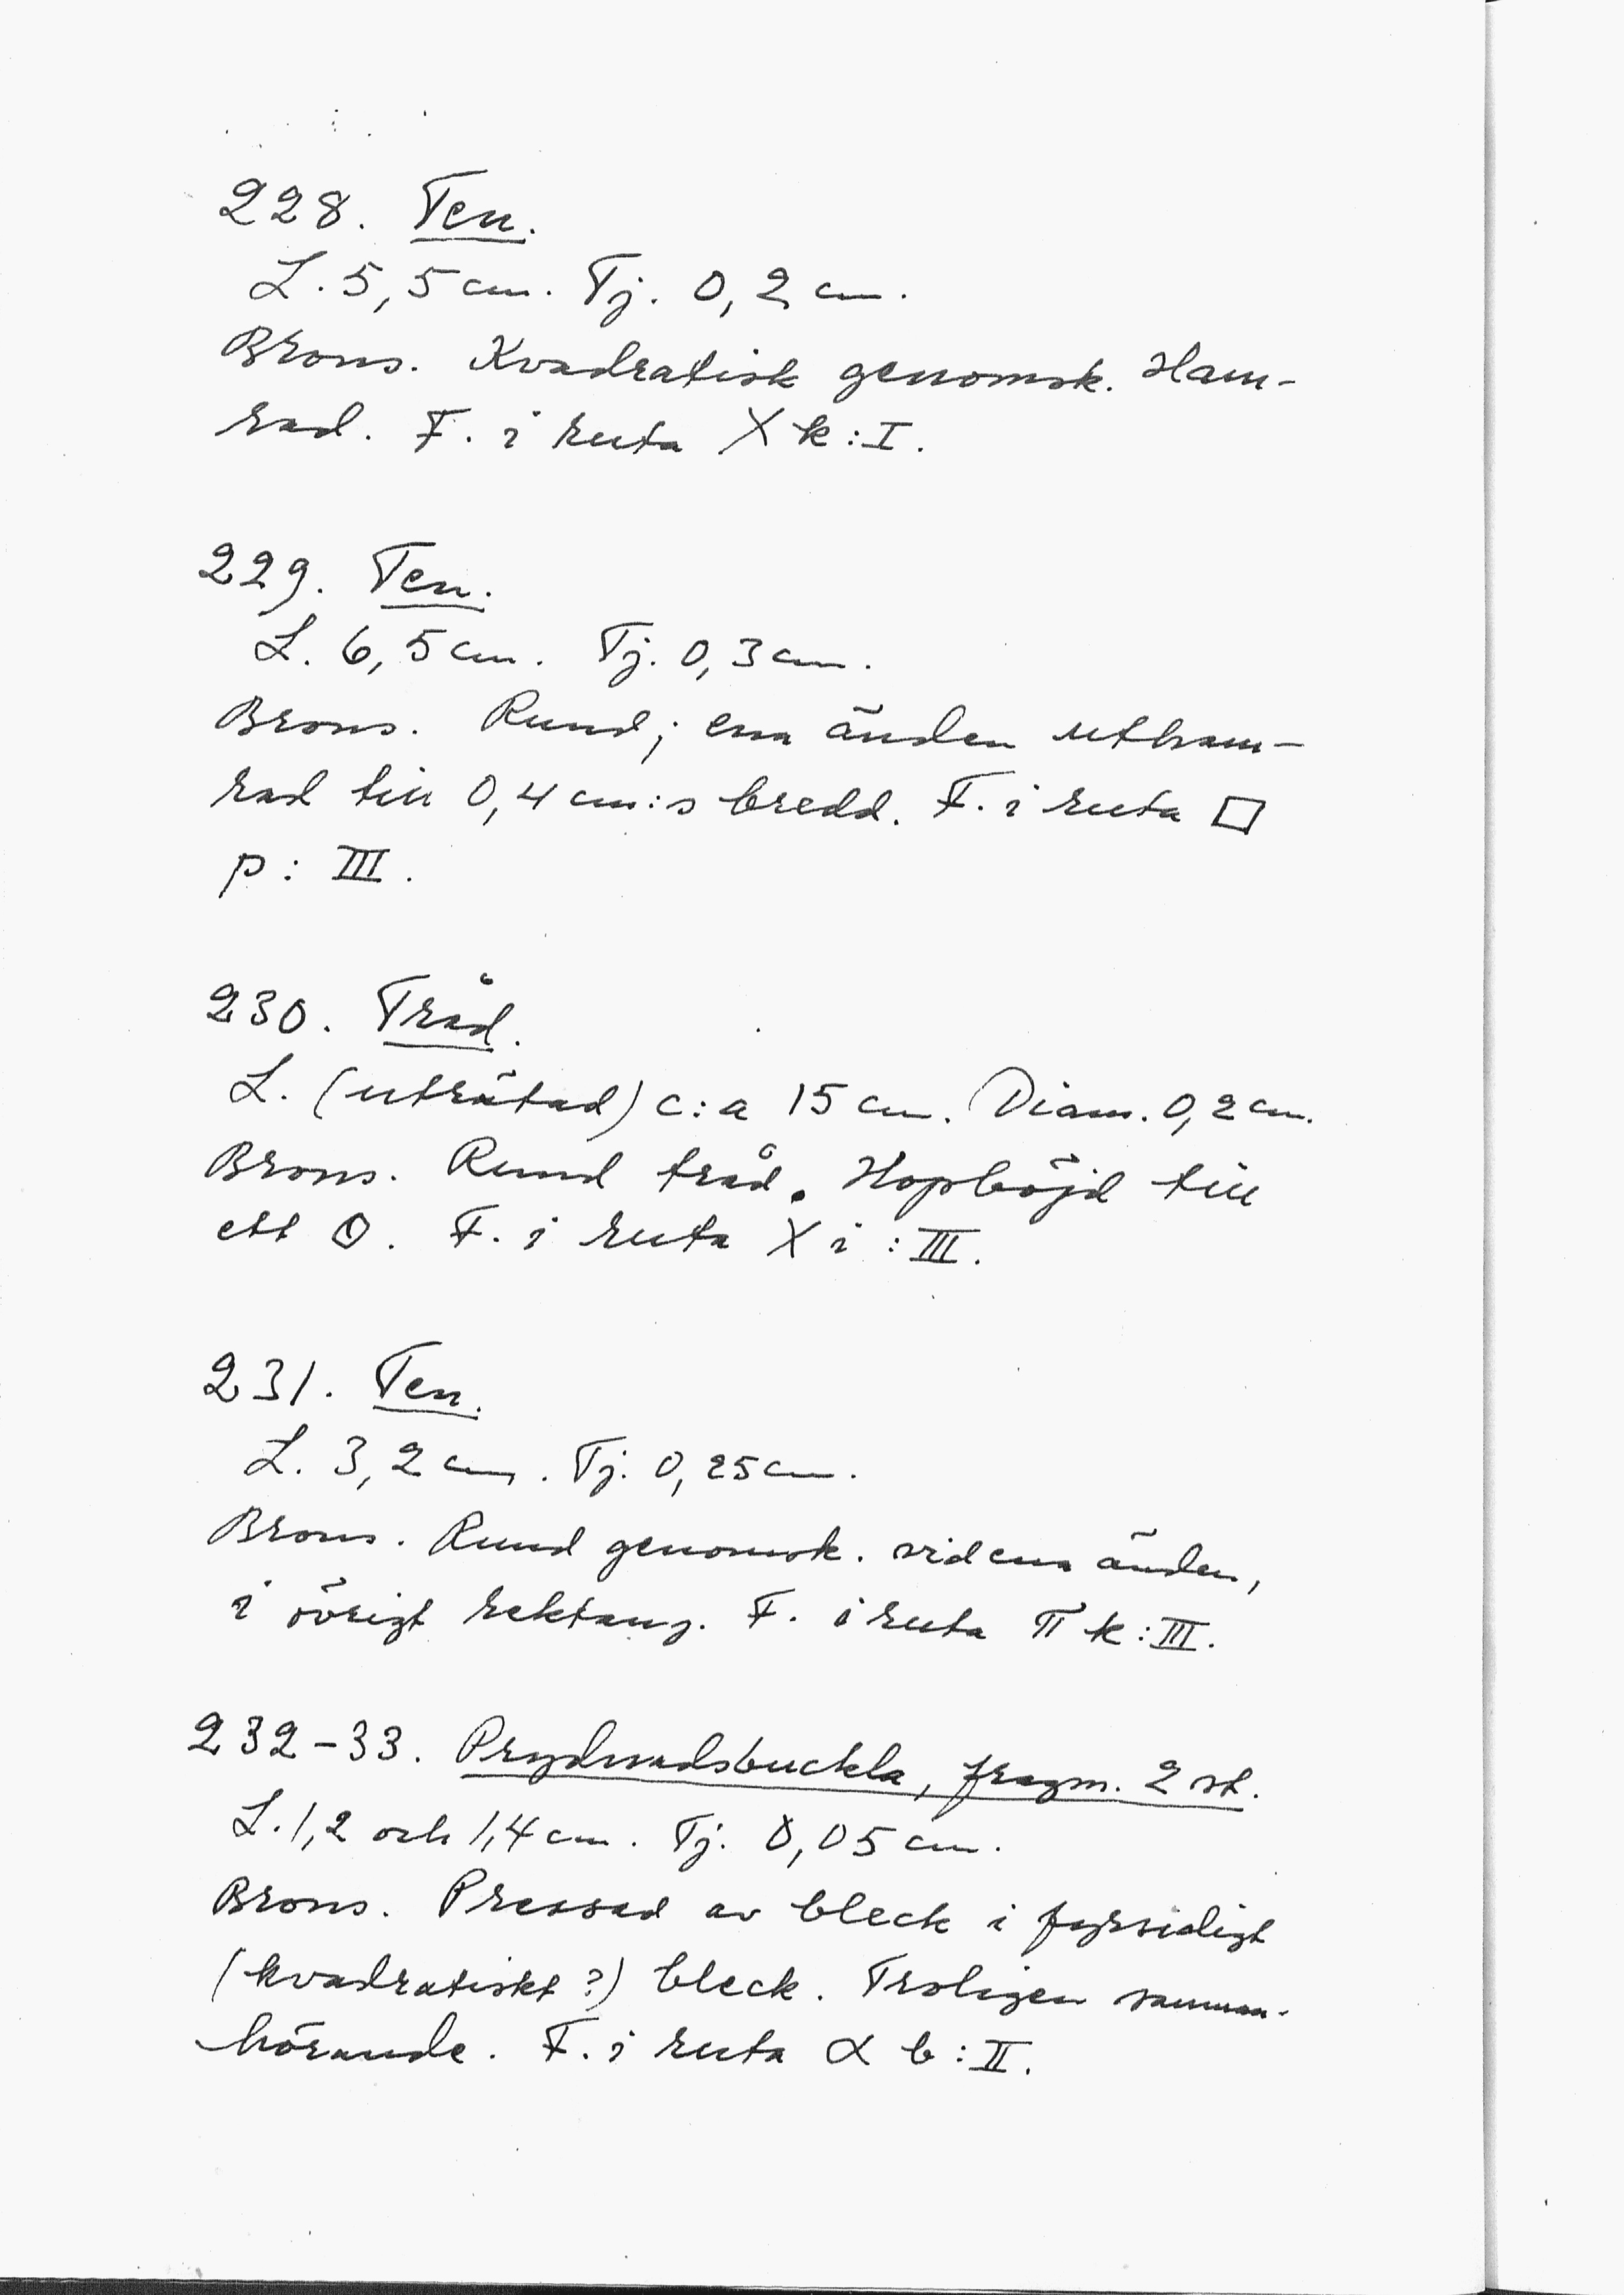 228. Ten.
L. 5,5 cm. Tj. 0,2 cm.
Brons. Kvadratisk genomsk. Ham-
rad. F. i ruta X k:I.
229. Ten.
L. 6,5 cm. Tj. 0,3 cm.
Brons. Rund; ena änden utham-
rad till 0,4 cm:s bredd. F. i ruta □
p: III.
230. Tråd.
L. (uträtad) c:a 15 cm. Diam. 0,2 cm.
Brons. Rund tråd. Hopböjd till
ett O. F. i ruta X i:III.
231. Ten.
L. 3,2 cm. Tj. 0,25 cm.
Brons. Rund genomsk. vid ena änden,
i övrigt rektang. F. i ruta π k:III.
232-33. Prydnadsbuckla, fragm. 2 st.
L. 1,2 och 1,4 cm. Tj. 0,05 cm.
Brons. Pressad av bleck i fyrsidigt
(kvadratiskt?) bleck. Troligen samman-
hörande. F. i ruta α b:II.